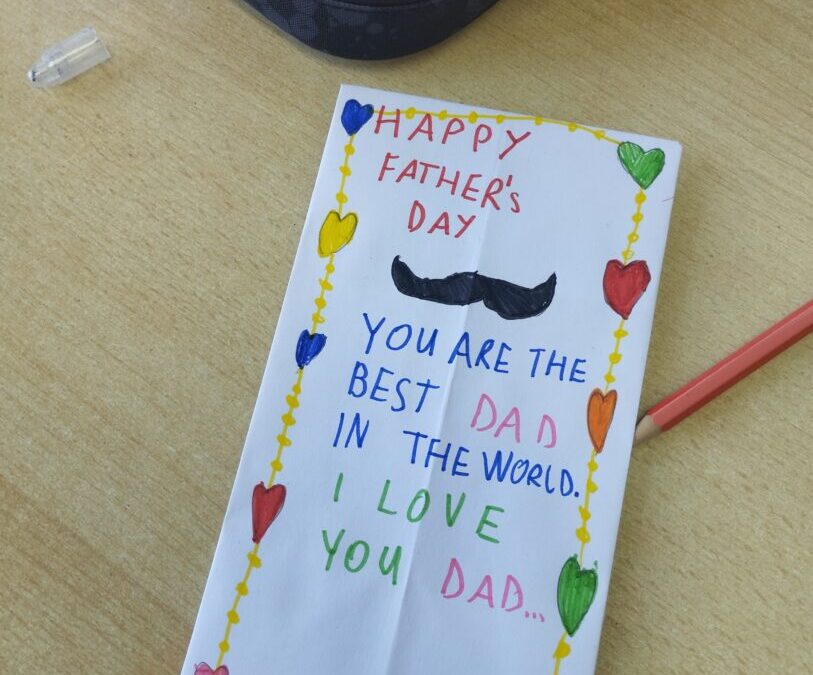 HAPPY
FATHER's
DAY
YOU ARE THE
BEST DAD
IN THE WORLD.
I LOVE
YOU DAD...